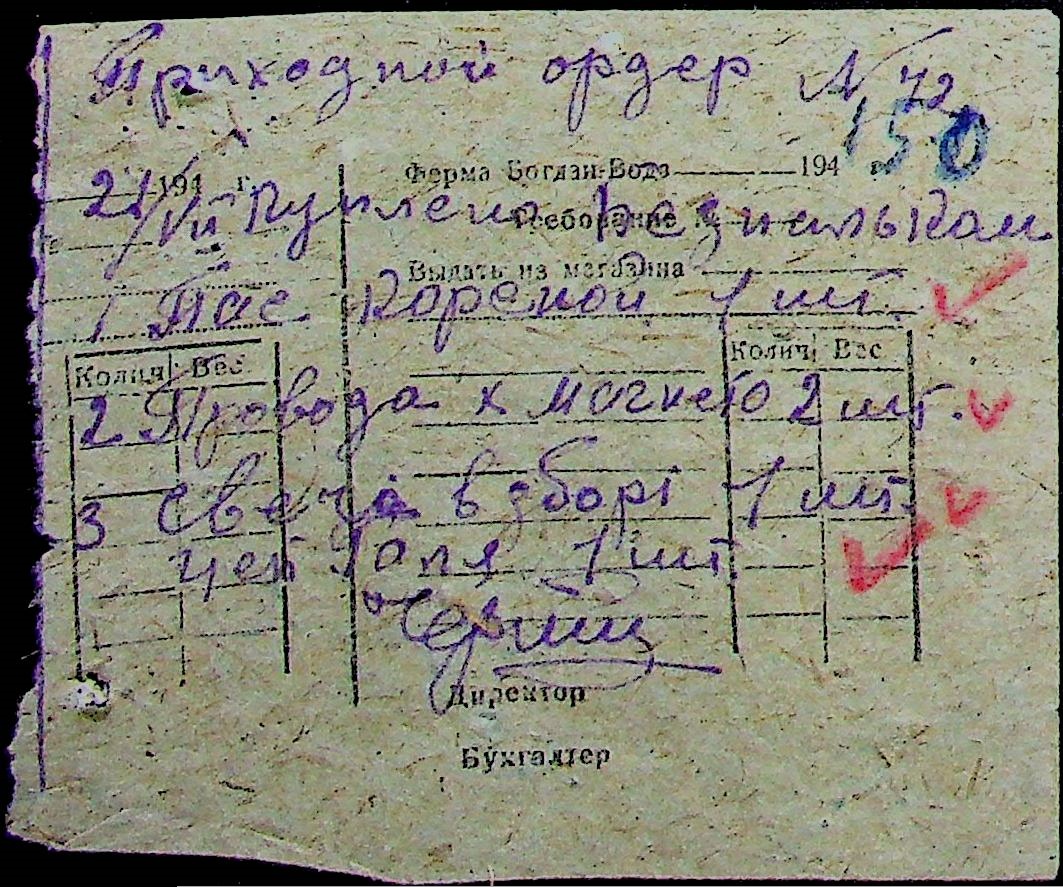 Приходной ордер № 72
150
194 г. Ферма Богдан-Вода 194
21/VII Куплено
Требование
Выдать из магазина
1 Пас 1 шт.
Колич Вес Колич Вес
2 Провода к магнето 2 шт.
3 Свеча в зборі 1 шт.
цеп Галя 1 шт.
Директор
Бухгалтер